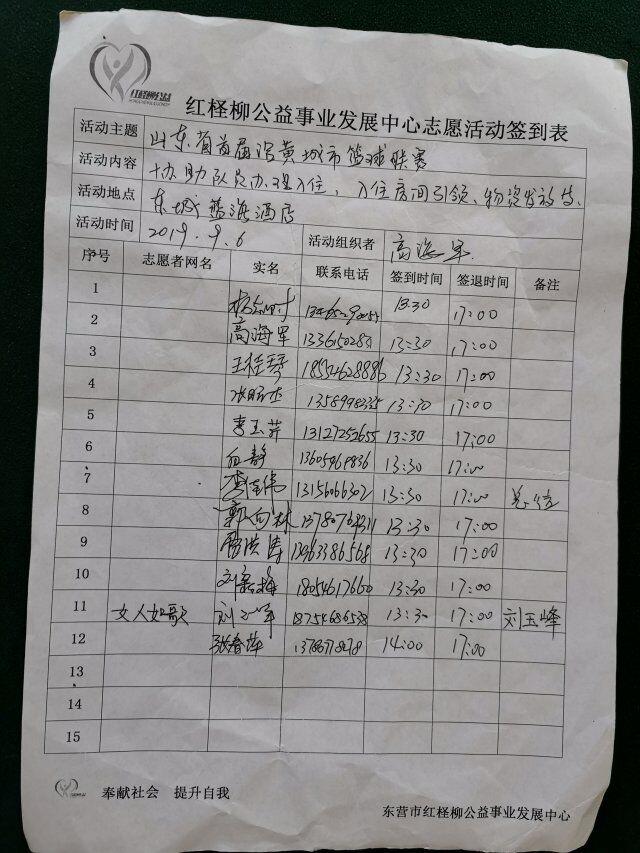 红柽柳公益
红柽柳公益事业发展中心志愿活动签到表
活动主题 山东省首届沿黄城市篮球联赛
活动内容 协助队员办理入住、入住房间引领、物资发放等.
活动地点 东城蓝海酒店
活动时间 2019.9.6 活动组织者 高海军
序号 志愿者网名 实名 联系电话 签到时间 签退时间 备注
1 13:30 17:00
2 高海军 13:30 17:00
3 王桂琴 18554628886 13:30 17:00
4 17:00
5 李玉萍 13127252655 13:30 17:00
6 白静 13:30 17:00
7 13156066302 13:30 17:00
8 郭向林 13:30 17:00
9 雷洪涛 13963386568 13:30 17:00
10 18054617660 13:30 17:00
11 女人如歌 18754686538 13:30 17:00 刘玉峰
12 张春萍 14:00 17:00
13
14
15
奉献社会 提升自我
东营市红柽柳公益事业发展中心